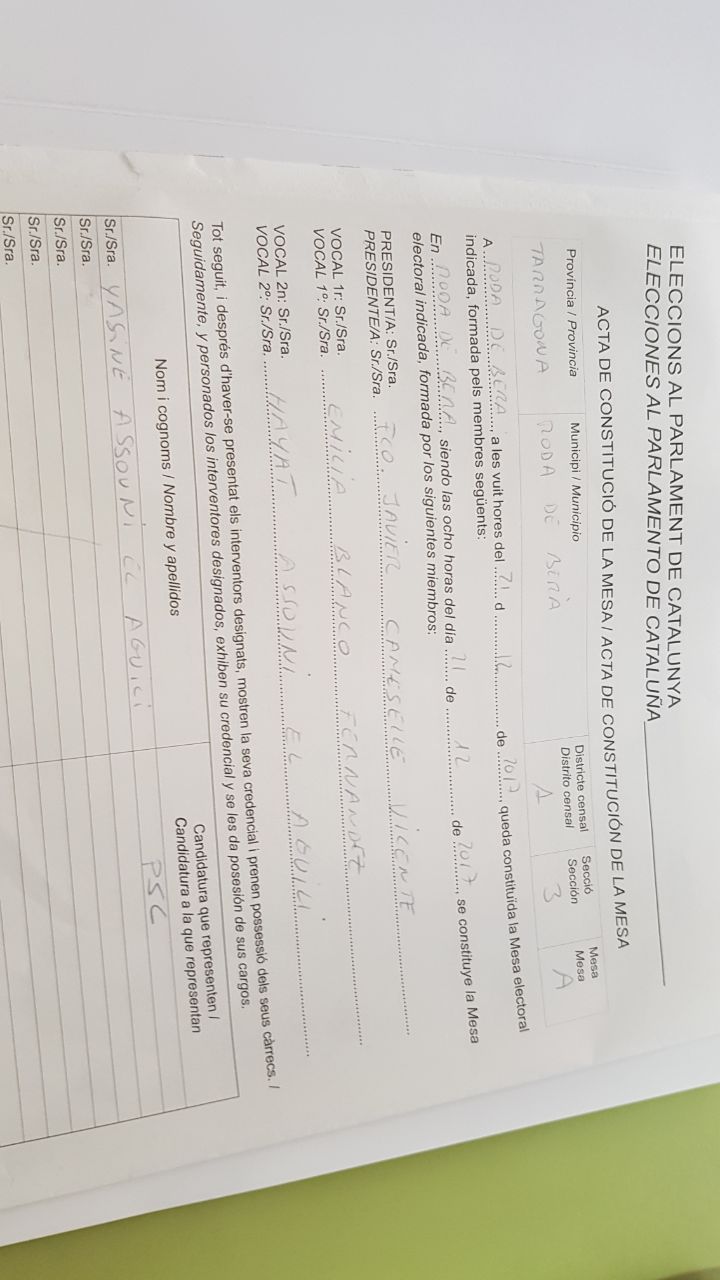 ELECCIONS AL PARLAMENT DE CATALUNYA
ELECCIONES AL PARLAMENTO DE CATALUÑA
ACTA DE CONSTITUCIÓ DE LA MESA / ACTA DE CONSTITUCIÓN DE LA MESA
Província / Provincia Municipi / Municipio Districte censal Distrito censal Secció Sección Mesa Mesa
TARRAGONA RODA DE BERÀ A 3 A
A RODA DE BERA, a les vuit hores del 21 d 12 de 2017, queda constituïda la Mesa electoral
indicada, formada pels membres següents:
En RODA DE BERA, siendo las ocho horas del día 21 de 12 de 2017, se constituye la Mesa
electoral indicada, formada por los siguientes miembros:
PRESIDENT/A: Sr./Sra.
PRESIDENTE/A: Sr./Sra. FCO. JAVIER CAMESELLE VICENTE
VOCAL 1r: Sr./Sra.
VOCAL 1º: Sr./Sra. EMILIA BLANCO FERNANDEZ
VOCAL 2n: Sr./Sra.
VOCAL 2º: Sr./Sra. HAYAT ASSOUNI EL AGUILI
Tot seguit, i després d'haver-se presentat els interventors designats, mostren la seva credencial i prenen possessió dels seus càrrecs. /
Seguidamente, y personados los interventores designados, exhiben su credencial y se les da posesión de sus cargos.
Nom i cognoms / Nombre y apellidos Candidatura que representen / Candidatura a la que representan
Sr./Sra. YASINE ASSOUNI EL AGUILI PSC
Sr./Sra.
Sr./Sra.
Sr./Sra.
Sr./Sra.